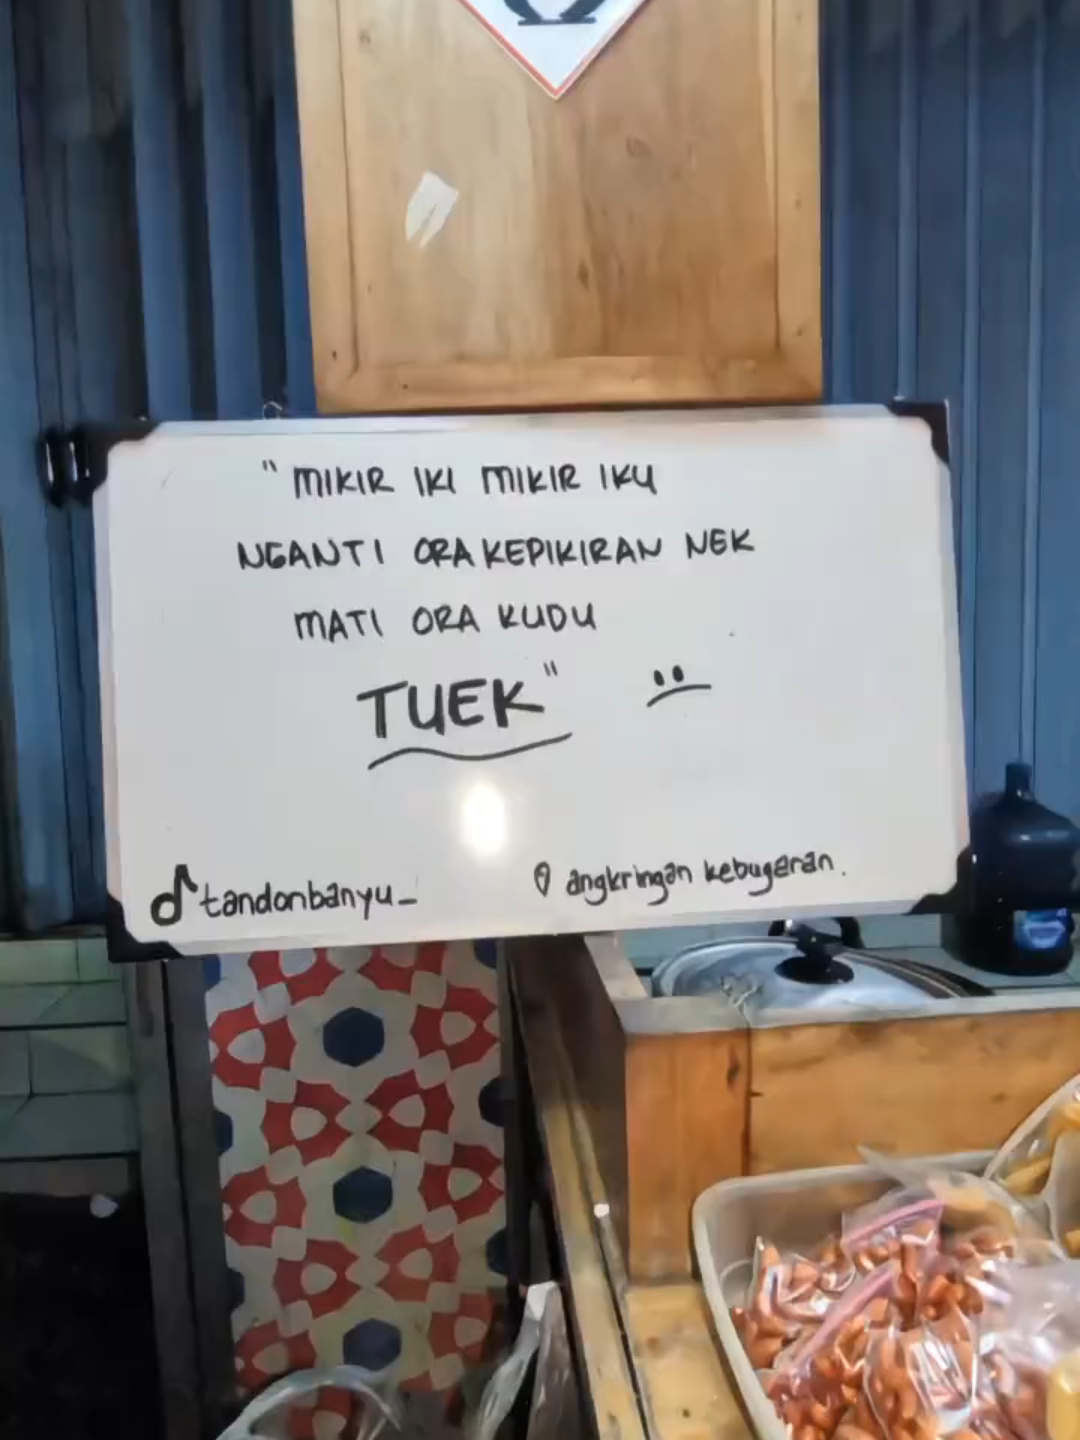 "MIKIR IKI MIKIR IKU
NGANTI ORA KEPIKIRAN NEK
MATI ORA KUDU
TUEK"
tandonbanyu_
angkringan kebugaran.